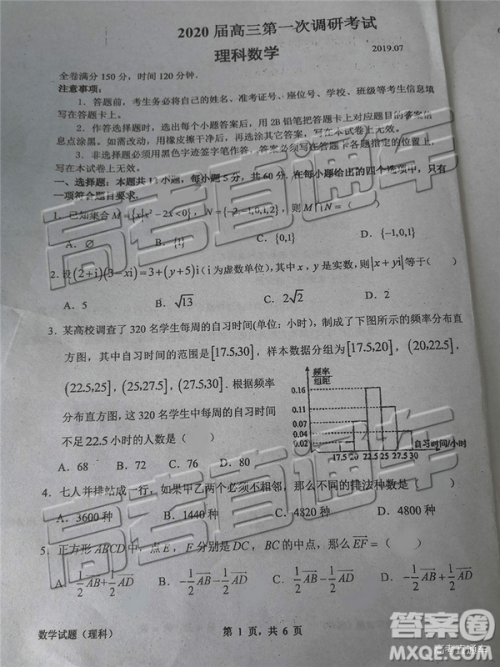 2020 届高三第一次调研考试
理科数学
2019.07
全卷满分 150 分，时间 120 分钟．
注意事项：
1．答题前，考生务必将自己的姓名、准考证号、座位号、学校、班级等考生信息填
写在答题卡上．
2．作答选择题时，选出每个小题答案后，用 2B 铅笔把答题卡上对应题目的答案标
信息点涂黑．如需改动，用橡皮擦干净后，再选涂其它答案，写在本试卷上无效．
3．非选择题必须用黑色字迹签字笔作答，答案必须写在答题卡各题指定的位置上，
写在本试卷上无效．
一、选择题：本题共 12 小题，每小题 5 分，共 60 分．在每小题给出的四个选项中，只有
一项符合题目要求．
1．已知集合 M={x|x²−2x<0}，N={−2,−1,0,1,2}，则 M∩N=（ ）
A．∅ B．{1} C．{0,1} D．{−1,0,1}
2．设(2+i)(3−xi)=3+(y+5)i（i 为虚数单位），其中 x，y 是实数，则|x+yi|等于（ ）
A．5 B．√13 C．2√2 D．2
3．某高校调查了 320 名学生每周的自习时间(单位：小时)，制成了下图所示的频率分布直
方图，其中自习时间的范围是[17.5,30]，样本数据分组为[17.5,20]，(20,22.5]，
(22.5,25]，(25,27.5]，(27.5,30]．根据频率
分布直方图，这 320 名学生中每周的自习时间
不足 22.5 小时的人数是（ ）
A．68 B．72 C．76 D．80
频率
组距
0.16
0.08
0.04
0.02
17.5 20 22.5 25 27.5 30
自习时间/小时
4．七人并排站成一行，如果甲乙两个必须不相邻，那么不同的排法种数是（ ）
A．3600 种 B．1440 种 C．4820 种 D．4800 种
5．正方形 ABCD 中，点 E，F 分别是 DC，BC 的中点，那么 EF=（ ）
A．1/2 AB+1/2 AD B．−1/2 AB−1/2 AD C．−1/2 AB+1/2 AD D．1/2 AB−1/2 AD
数学试题（理科） 第 1 页，共 6 页
高考直通车
答案圈
MXQE.COM